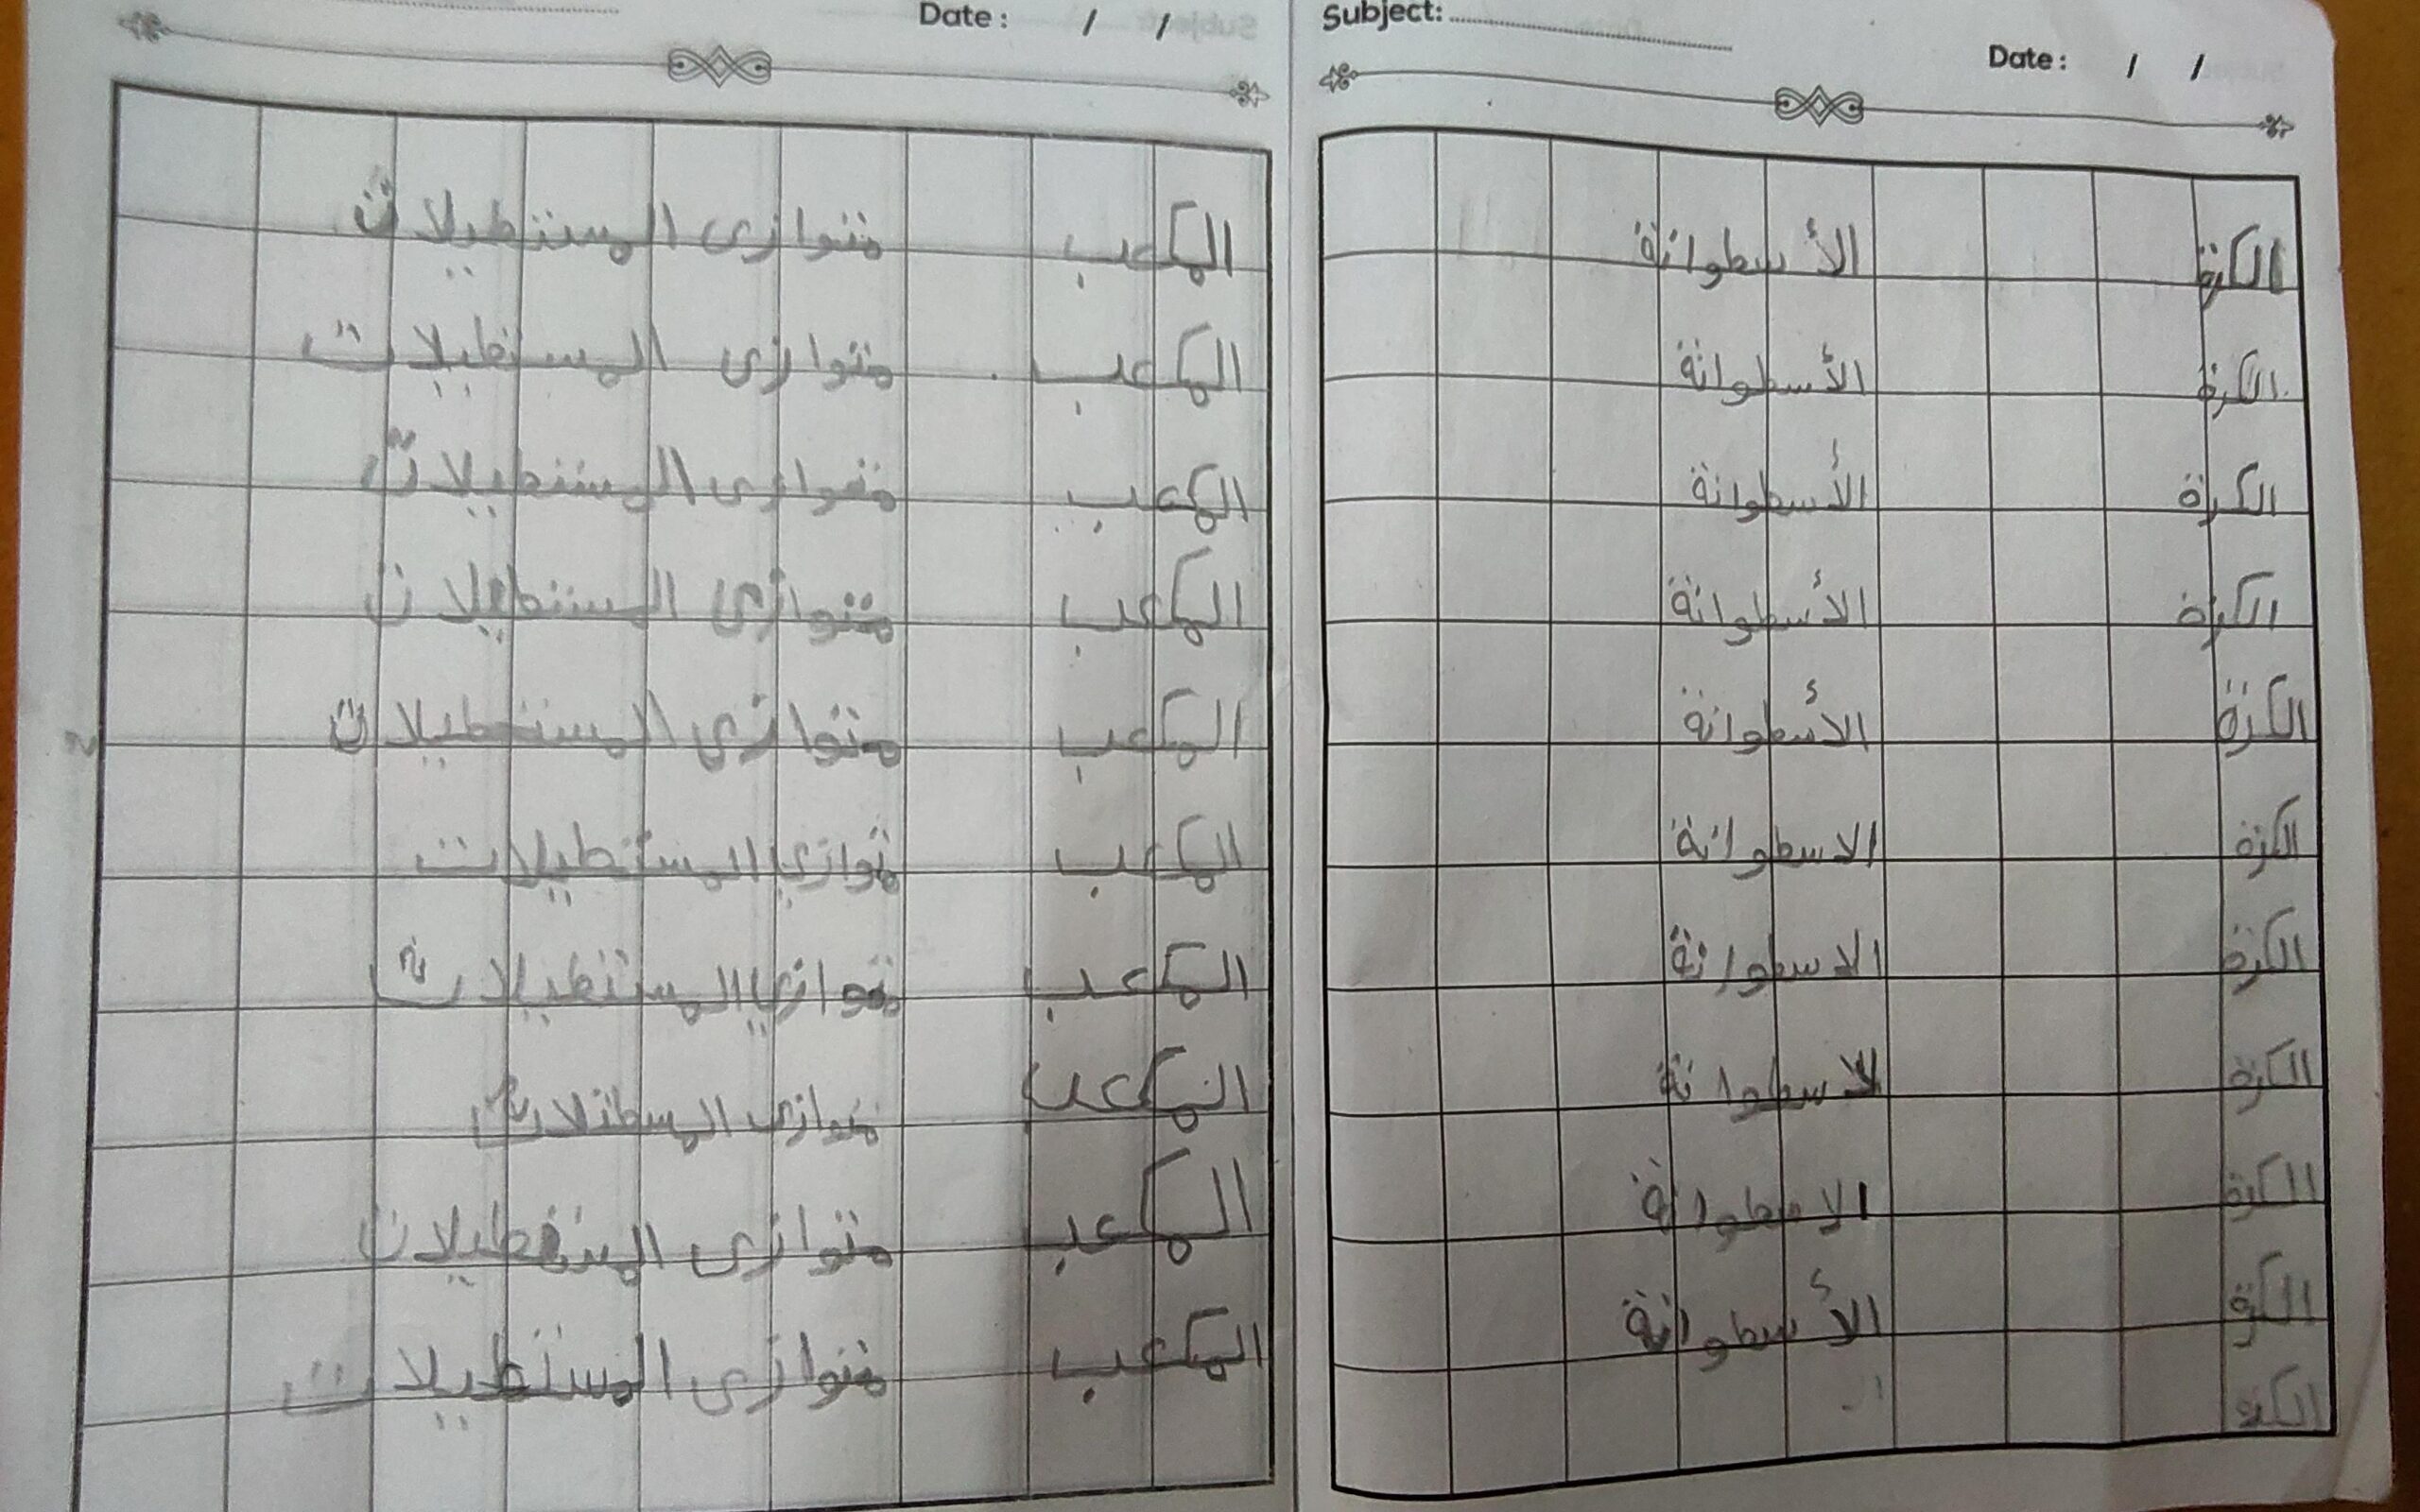 Subject:
Date : / /
الكرة الأسطوانة
الكرة الأسطوانة
الكرة الأسطوانة
الكرة الأسطوانة
الكرة الأسطوانة
الكرة الاسطوانة
الكرة الاسطوانة
الكرة الاسطوانة
الكرة الاسطوانة
الكرة الأسطوانة
الكرة
Date : / /
المكعب متوازى المستطيلات
المكعب متوازى المستطيلات
المكعب متوازى المستطيلات
المكعب متوازى المستطيلات
المكعب متوازى المستطيلات
المكعب توازي المستطيلات
المكعب متوازي المستطيلات
المكعب
المكعب متوازى المستطيلات
المكعب متوازى المستطيلات